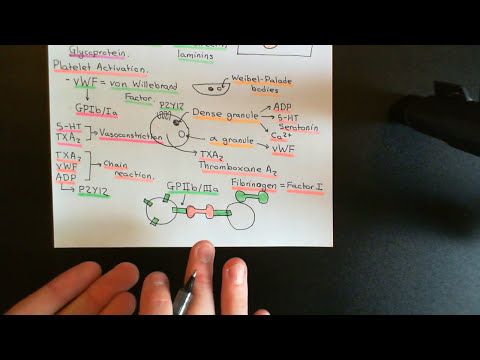 Glycoprotein.
laminins
Platelet Activation.
- vWF = von Willebrand Factor.
Weibel-Palade bodies
GPIb/Ia
P2Y12
Dense granule
ADP
5-HT
Seratonin
Ca2+
5-HT
TXA2
Vasoconstriction
α granule
vWF
TXA2
Thromboxane A2
TXA2
vWF
ADP
Chain reaction.
P2Y12
GPIIb/IIIa
Fibrinogen = Factor I